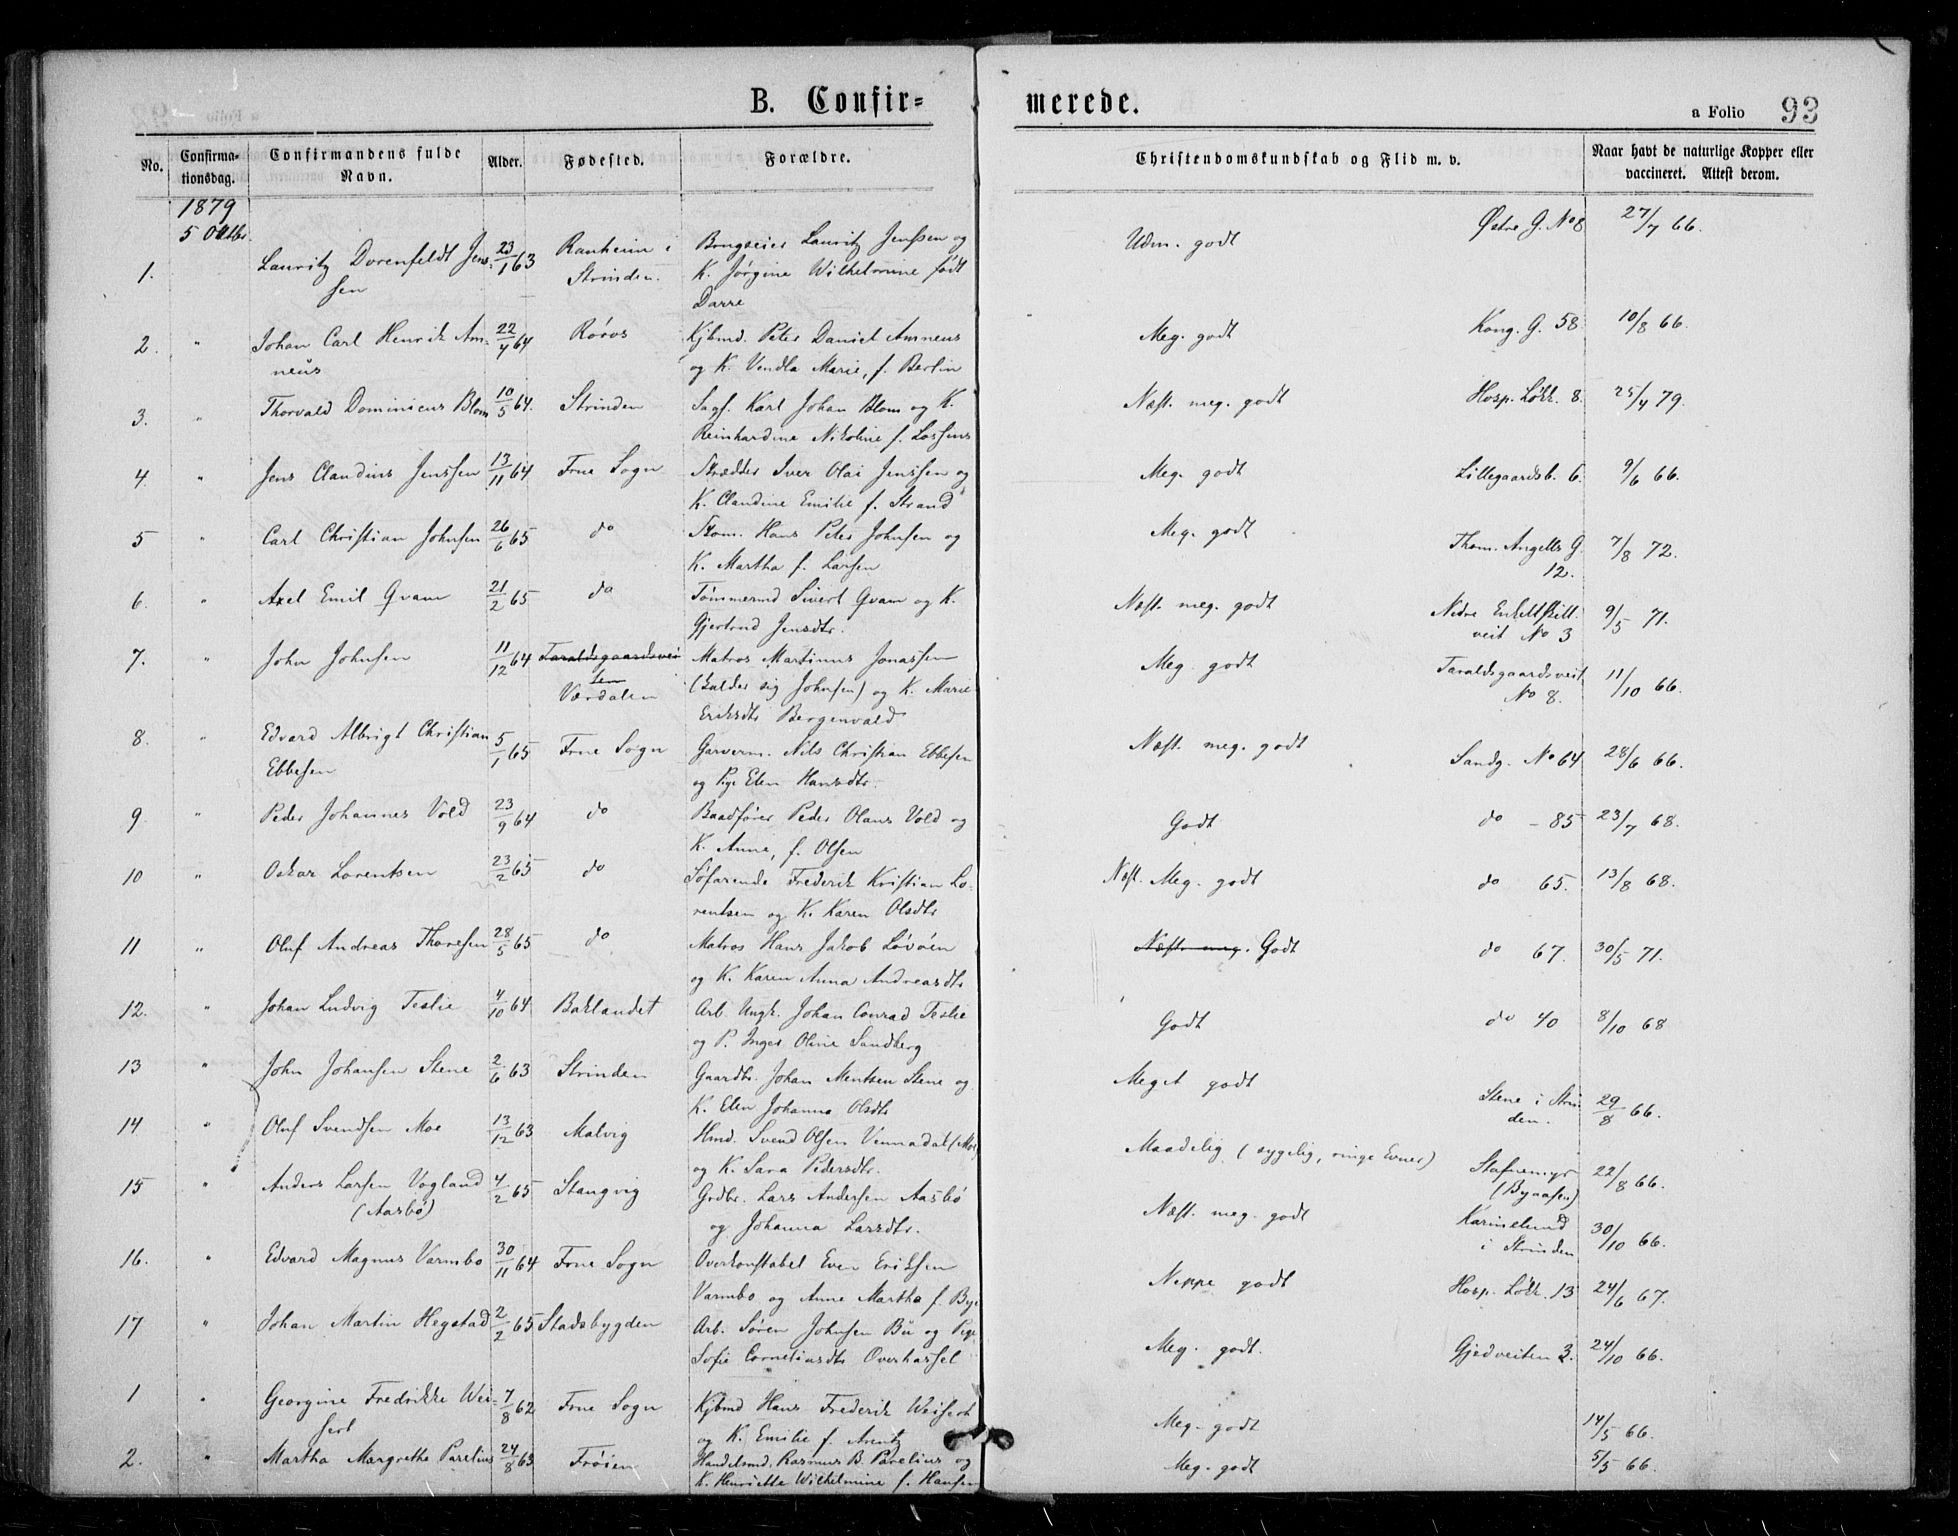 B. Confir=
merede.
a Folio 93
No.
Confirma-
tionsdag.
Confirmandens fulde
Navn.
Alder.
Fødested.
Forældre.
Christendomskundskab og Flid m. v.
Naar havt de naturlige Kopper eller
vaccineret. Attest derom.
1879
5 Oktbr.
1. Lauritz Dorenfeldt Jens- 23/1 63 Ranheim i Brugseier Lauritz Jenssen og Udm. godt Østre G. No 8 27/7 66.
sen Strinden. K. Jørgine Wilhelmine født
Darre
2. " Johan Carl Henrik Am- 22/4 64 Røros Kjbmd. Peter Daniel Amneus Meg. godt Kong. G. 58. 10/8 66.
neus og K. Vendla Marie, f. Berlin
3. " Thorvald Dominicus Blom 10/5 64. Strinden Sagf. Karl Johan Blom og K. Næst. meg. godt Hosp. Løkk. 8. 25/4 79.
Reinhardine Nikoline f. Lossius
4. " Jens Claudius Jenssen 13/11 64 Frue Sogn Skrædder Iver Olai Jenssen og Meg. godt Lillegaardsb. 6. 9/6 66.
K. Claudine Emilie f. Strand
5 " Carl Christian Johnsen 26/6 65 do Skom. Hans Peter Johnsen og Meg. godt Thom. Angells G. 7/8 72.
K. Martha f. Larsen 12.
6. " Axel Emil Qvam 21/2 65 do Tømmermd Sivert Qvam og K. Næst. meg. godt Nedre Enkeltskill. 9/5 71.
Gjertrud Jensdtr. veit No 3
7. " John Johnsen 11/12 64 Taraldsgaardsvei Matros Martinus Jonassen Meg. godt Taraldsgaardsveit 11/10 66.
ten (kalder sig Johnsen) og K. Marie No 8.
Værdalen Eriksdtr Bergenvald
8. " Edvard Albrigt Christian 5/1 65 Frue Sogn Garverm. Nils Christian Ebbesen Næst. meg. godt Sandg. No 64 28/6 66.
Ebbesen og Pige Elen Hansdtr.
9 " Peder Johannes Vold 23/9 64 do Baadfører Peder Olaus Vold og Godt do - 85 23/7 68.
K. Anne, f. Olsen
10 " Oskar Lorentsen 23/2 65 do Søfarende Frederik Kristian Lo- Næst. Meg. godt do 65. 13/8 68.
rentsen og K. Karen Olsdtr
11 " Oluf Andreas Thoresen 28/5 65 do Matros Hans Jakob Løvøen Næst. meg. Godt do 67. 30/5 71.
og K. Karen Anna Andreasdtr
12. " Johan Ludvig Teslie 4/10 64 Baklandet Arb. Ungk. Johan Conrad Teslie Godt do 40 8/10 68
og P. Inger Oline Sandberg
13 " John Johansen Stene 2/6 63 Strinden Gaardbr. Johan Mentsen Stene og Meget godt Stene i Strin 29/8 66.
K. Elen Johanna Olsdtr den.
14 " Oluf Svendsen Moe 13/12 63 Malvig Hmd. Svend Olsen Vennadal (Moe) Maadelig (sygelig, ringe Evner) Stafnemyr 22/8 66.
og K. Sara Pedersdtr. (Byaasen)
15 " Anders Larsen Vogland 4/2 65 Stangvig Grdbr. Lars Andersen Aasbø Næst. meg. godt Karinelund 30/10 66.
(Aasbø) og Johanna Larsdtr. i Strinden
16. " Edvard Magnus Varmbo 30/11 64 Frue Sogn Overkonstabel Even Eriksen Neppe godt Hosp. Løkk. 13 24/6 67.
Varmbo og Anne Martha f. Bye
17 " Johan Martin Hegstad 2/2 65 Stadsbygden Arb. Søren Johnsen Bü og Pige Meg. godt. Gjedveiten 3. 24/10 66.
Sofie Corneliusdtr Overhassel
1 " Georgine Fredrikke Wei- 7/8 62 Frue Sogn Kjbmd Hans Frederik Weisert Meg. godt 14/5 66.
sert og K. Emilie f. Arntz
2. " Martha Margrethe Parelius 24/8 63 Frøien Handelsmd. Rasmus B. Parelius og Meg. godt 5/5 66.
K. Henriette Wilhelmine f. Hansen